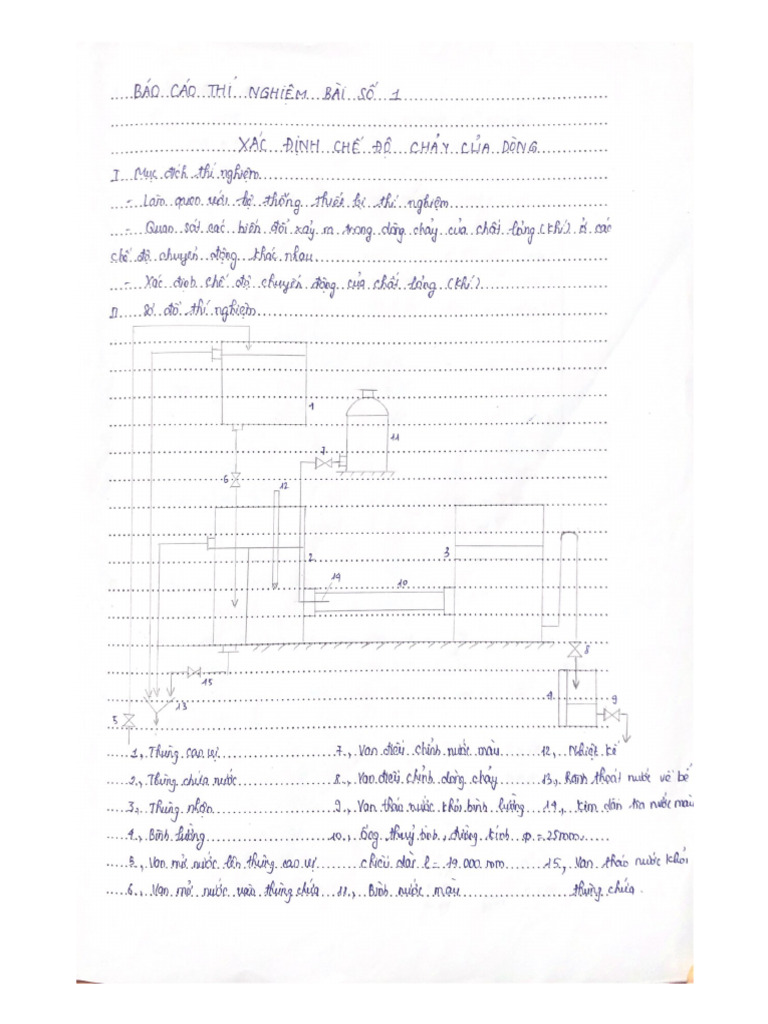 BÁO CÁO THÍ NGHIỆM BÀI SỐ 1
XÁC ĐỊNH CHẾ ĐỘ CHẢY CỦA DÒNG
I Mục đích thí nghiệm
- Làm quen với hệ thống thiết bị thí nghiệm
- Quan sát các biến đổi xảy ra trong dòng chảy của chất lỏng (khí) ở các
chế độ chuyển động khác nhau
- Xác định chế độ chuyển động của chất lỏng (khí)
II Sơ đồ thí nghiệm
1
11
7
6
12
2
3
14
10
8
15
13
4
9
5
1, Thùng cao vị 7, Van điều chỉnh nước màu 12, Nhiệt kế
2, Thùng chứa nước 8, Van điều chỉnh dòng chảy 13, Rãnh thoát nước về bể
3, Thùng nhận 9, Van tháo nước khỏi bình lường 14, Kim dẫn tia nước màu
4, Bình lường 10, Ống thuỷ tinh, đường kính φ = 25mm
5, Van mở nước lên thùng cao vị chiều dài l = 19.000 mm 15, Van tháo nước khỏi
6, Van mở nước vào thùng chứa 11, Bình nước màu thùng chứa.